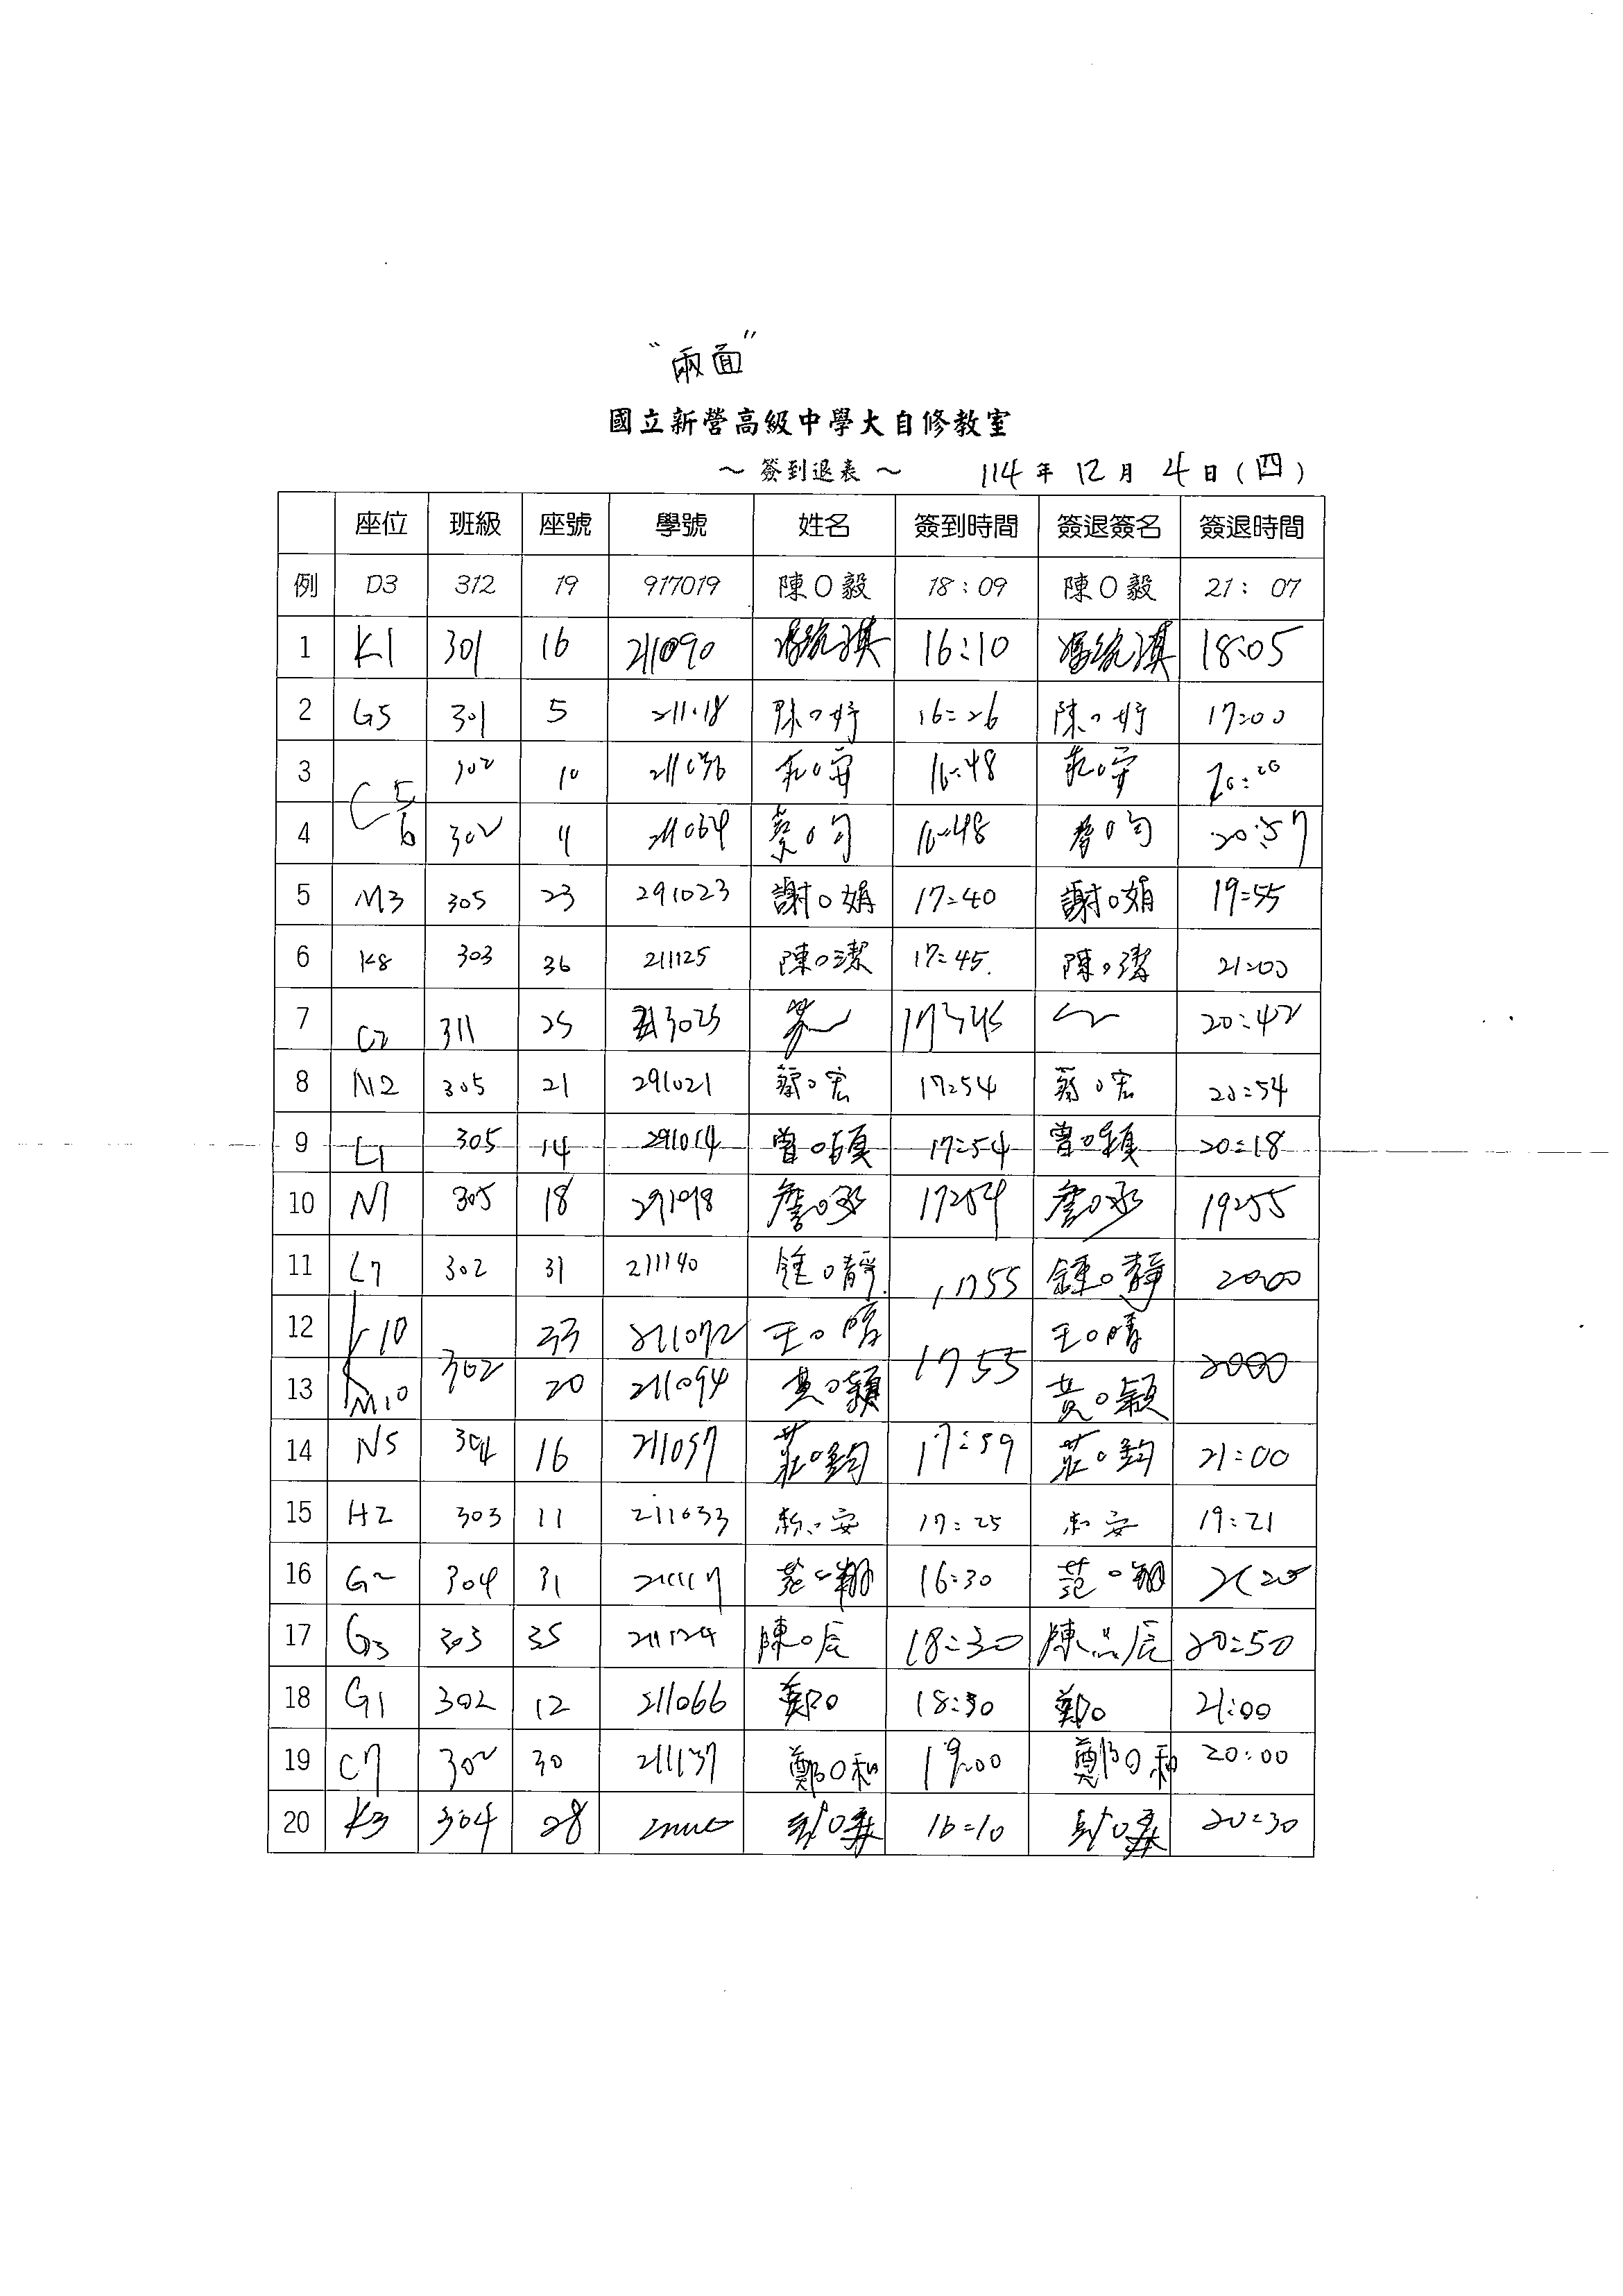 "兩面"
國立新營高級中學大自修教室
~簽到退表~ 114年12月4日(四)
座位 班級 座號 學號 姓名 簽到時間 簽退簽名 簽退時間
例 D3 312 19 917019 陳O毅 18:09 陳O毅 21:07
1 K1 301 16 211090 16:10 18:05
2 G5 301 5 陳O妤 16:26 陳O妤 17:00
3 C5 302 10 211036 16:48
4 6 302 11 211064 蔡O勻 16:48 蔡O勻 20:57
5 M3 305 23 291023 謝O娟 17:40 謝O娟 19:55
6 K8 303 36 211125 陳O潔 17:45. 陳O潔 21:00
7 C2 311 25 213025 17:45 20:42
8 N2 305 21 291021 蔡O宏 17:54 蔡O宏 20:54
9 L1 305 14 291014 曾O穎 17:54 曾O穎 20:18
10 N1 305 18 詹O丞 17:54 詹O丞 19:55
11 L7 302 31 211140 鍾O靜 1755 鍾O靜 2000
12 33 211072 王O晴 王O晴
302 1755 2000
13 M10 20 211094 黃O穎 黃O穎
14 N5 304 16 211057 莊O鈞 17:59 莊O鈞 21:00
15 H2 303 11 211033 17:25 19:21
16 304 31 范O翔 16:30 范O翔
17 G3 303 35 211124 陳O辰 18:30 陳O辰 20:50
18 G1 302 12 211066 鄭O 18:30 鄭O 21:00
19 C7 302 30 211137 鄭O和 19:00 鄭O和 20:00
20 K3 304 28 16:10 20:30